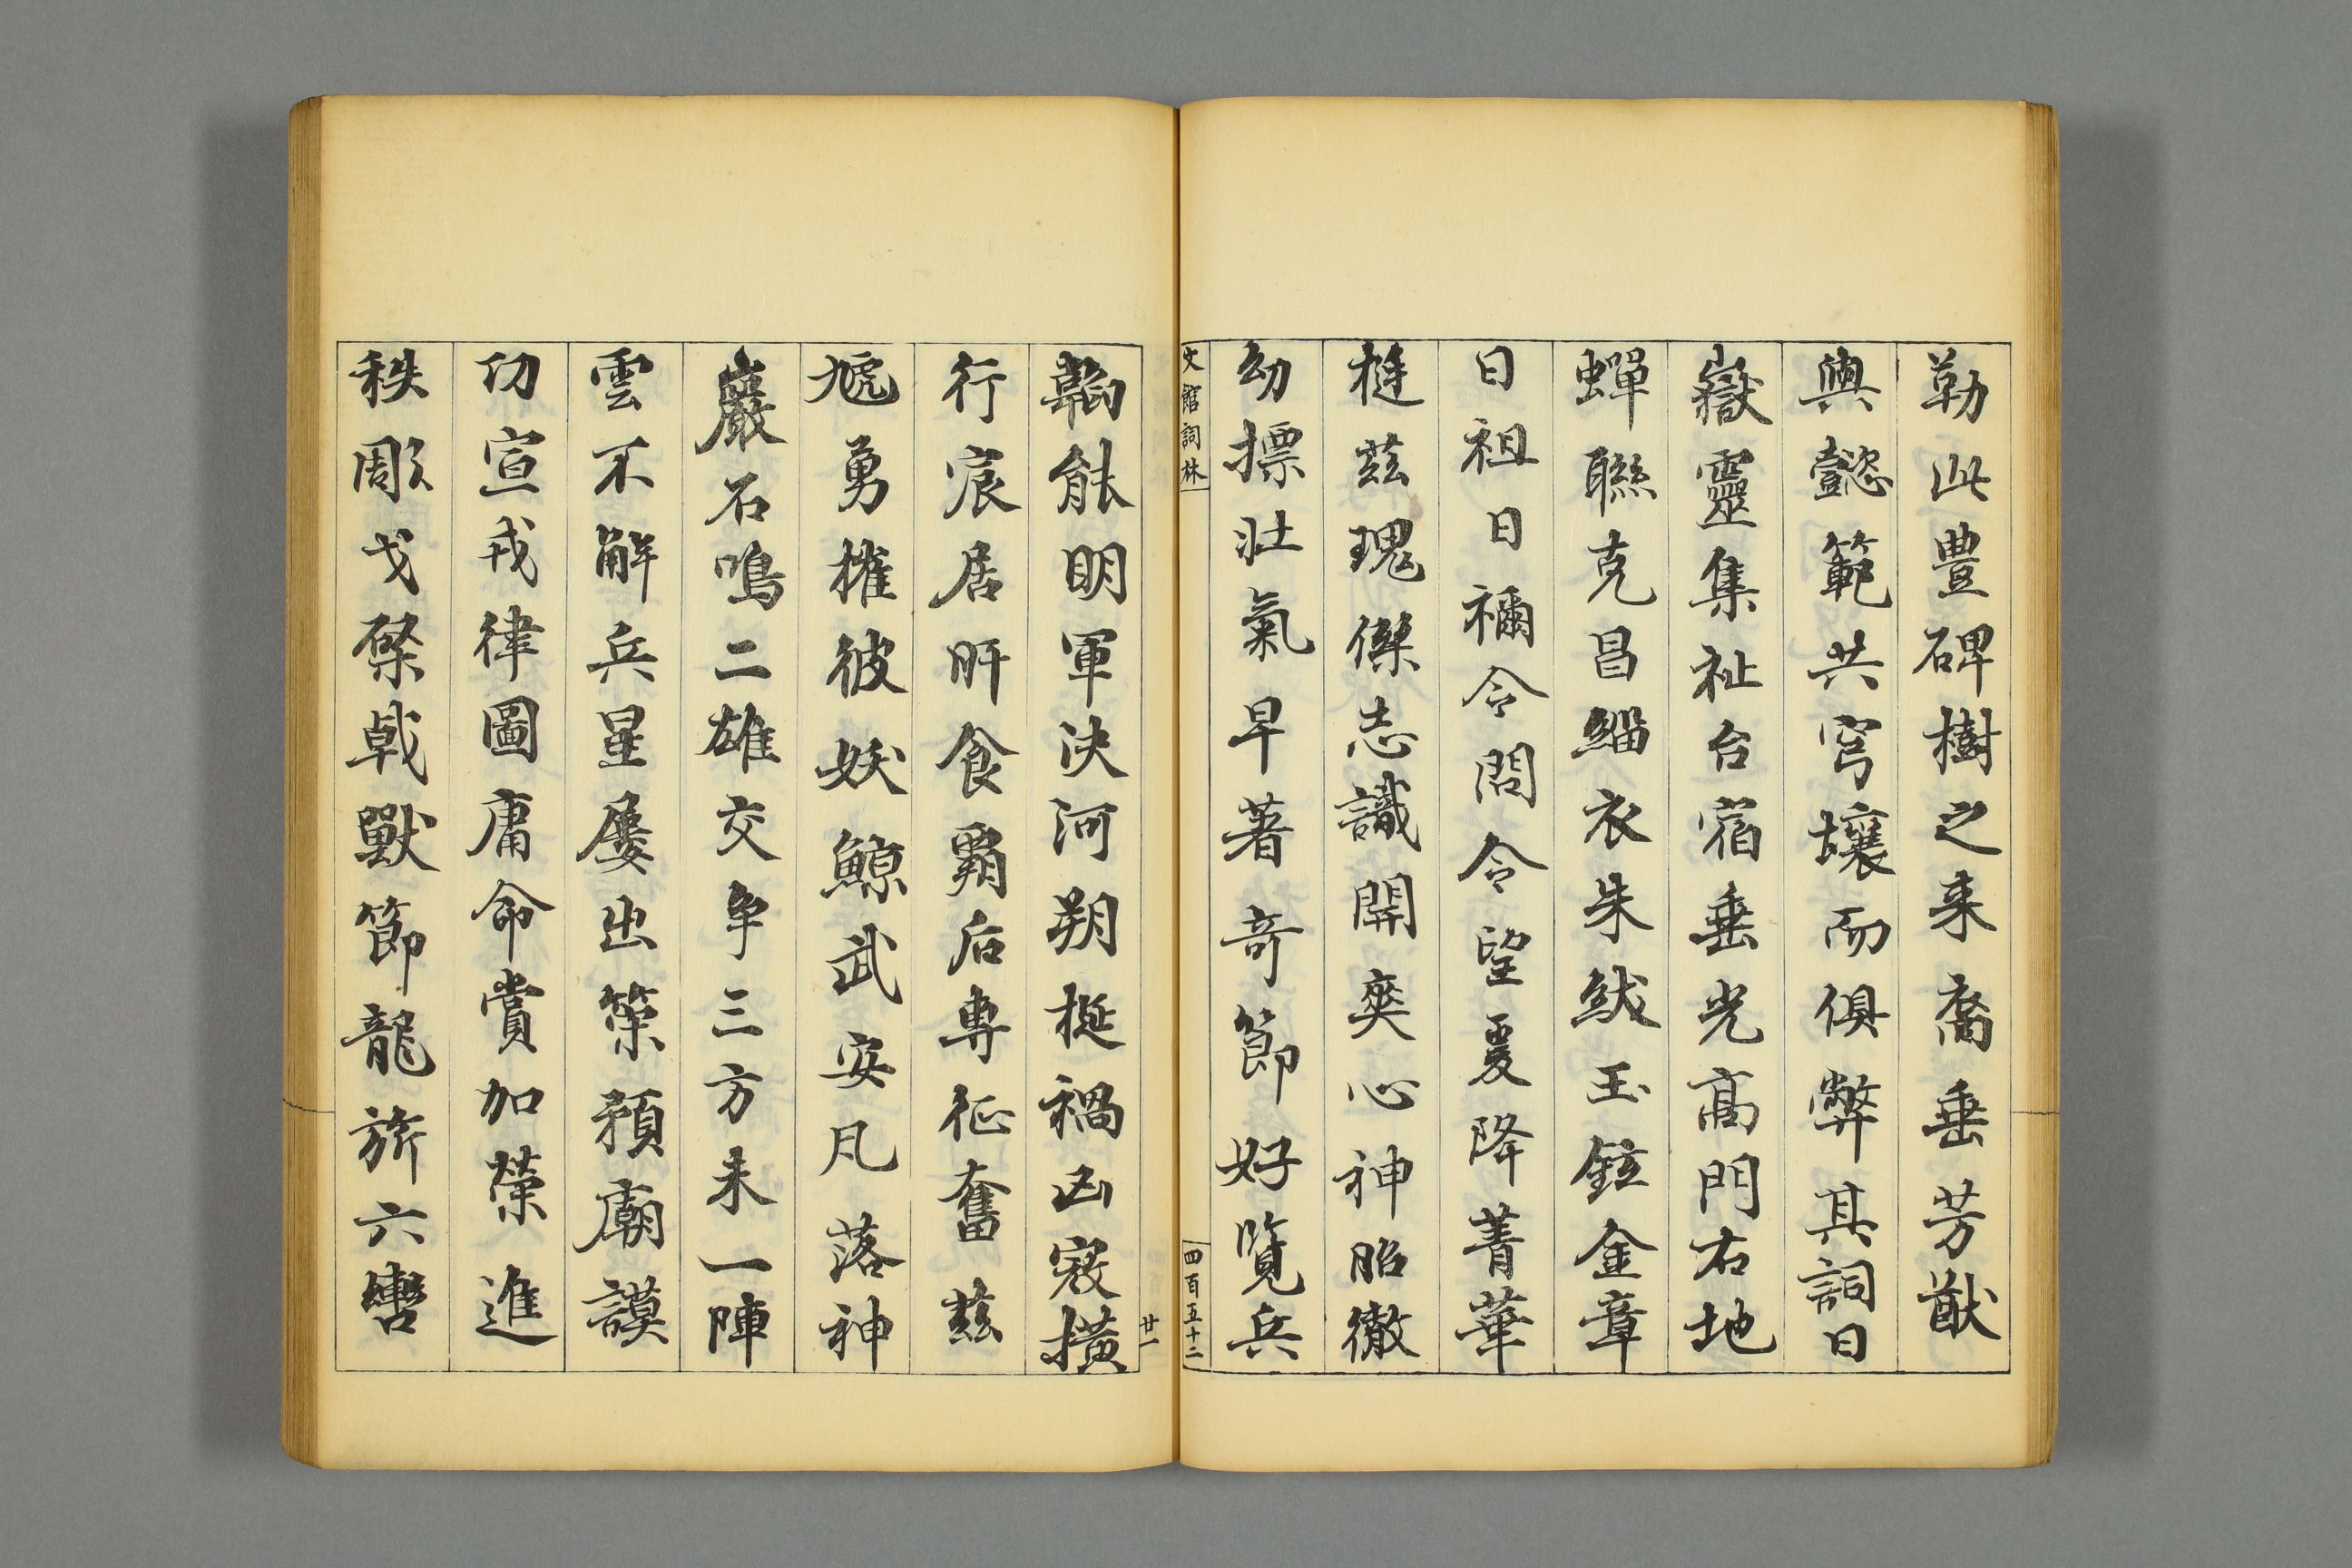 勒此豊碑樹之来裔垂芳猷
與懿範共穹壤而俱弊其詞曰
嶽靈集祉台宿垂光高門右地
蟬聯克昌緇衣朱紱玉鉉金章
曰祖曰禰令問令望夏降菁華
挺茲瑰傑志識開爽心神昭徹
幼摽壯氣早著奇節好覽兵
文館詞林
四百五十二
廿一
韜能明軍決河朔挻禍凶寇橫
行宸居旰食霸后專征奮茲
虓勇摧彼妖鯨武安凡落神
巖石鳴二雄交爭三方未一陣
雲不解兵星屢出策預廟謨
功宣戎律圖庸命賞加榮進
秩彫戈棨戟獸節龍旂六轡